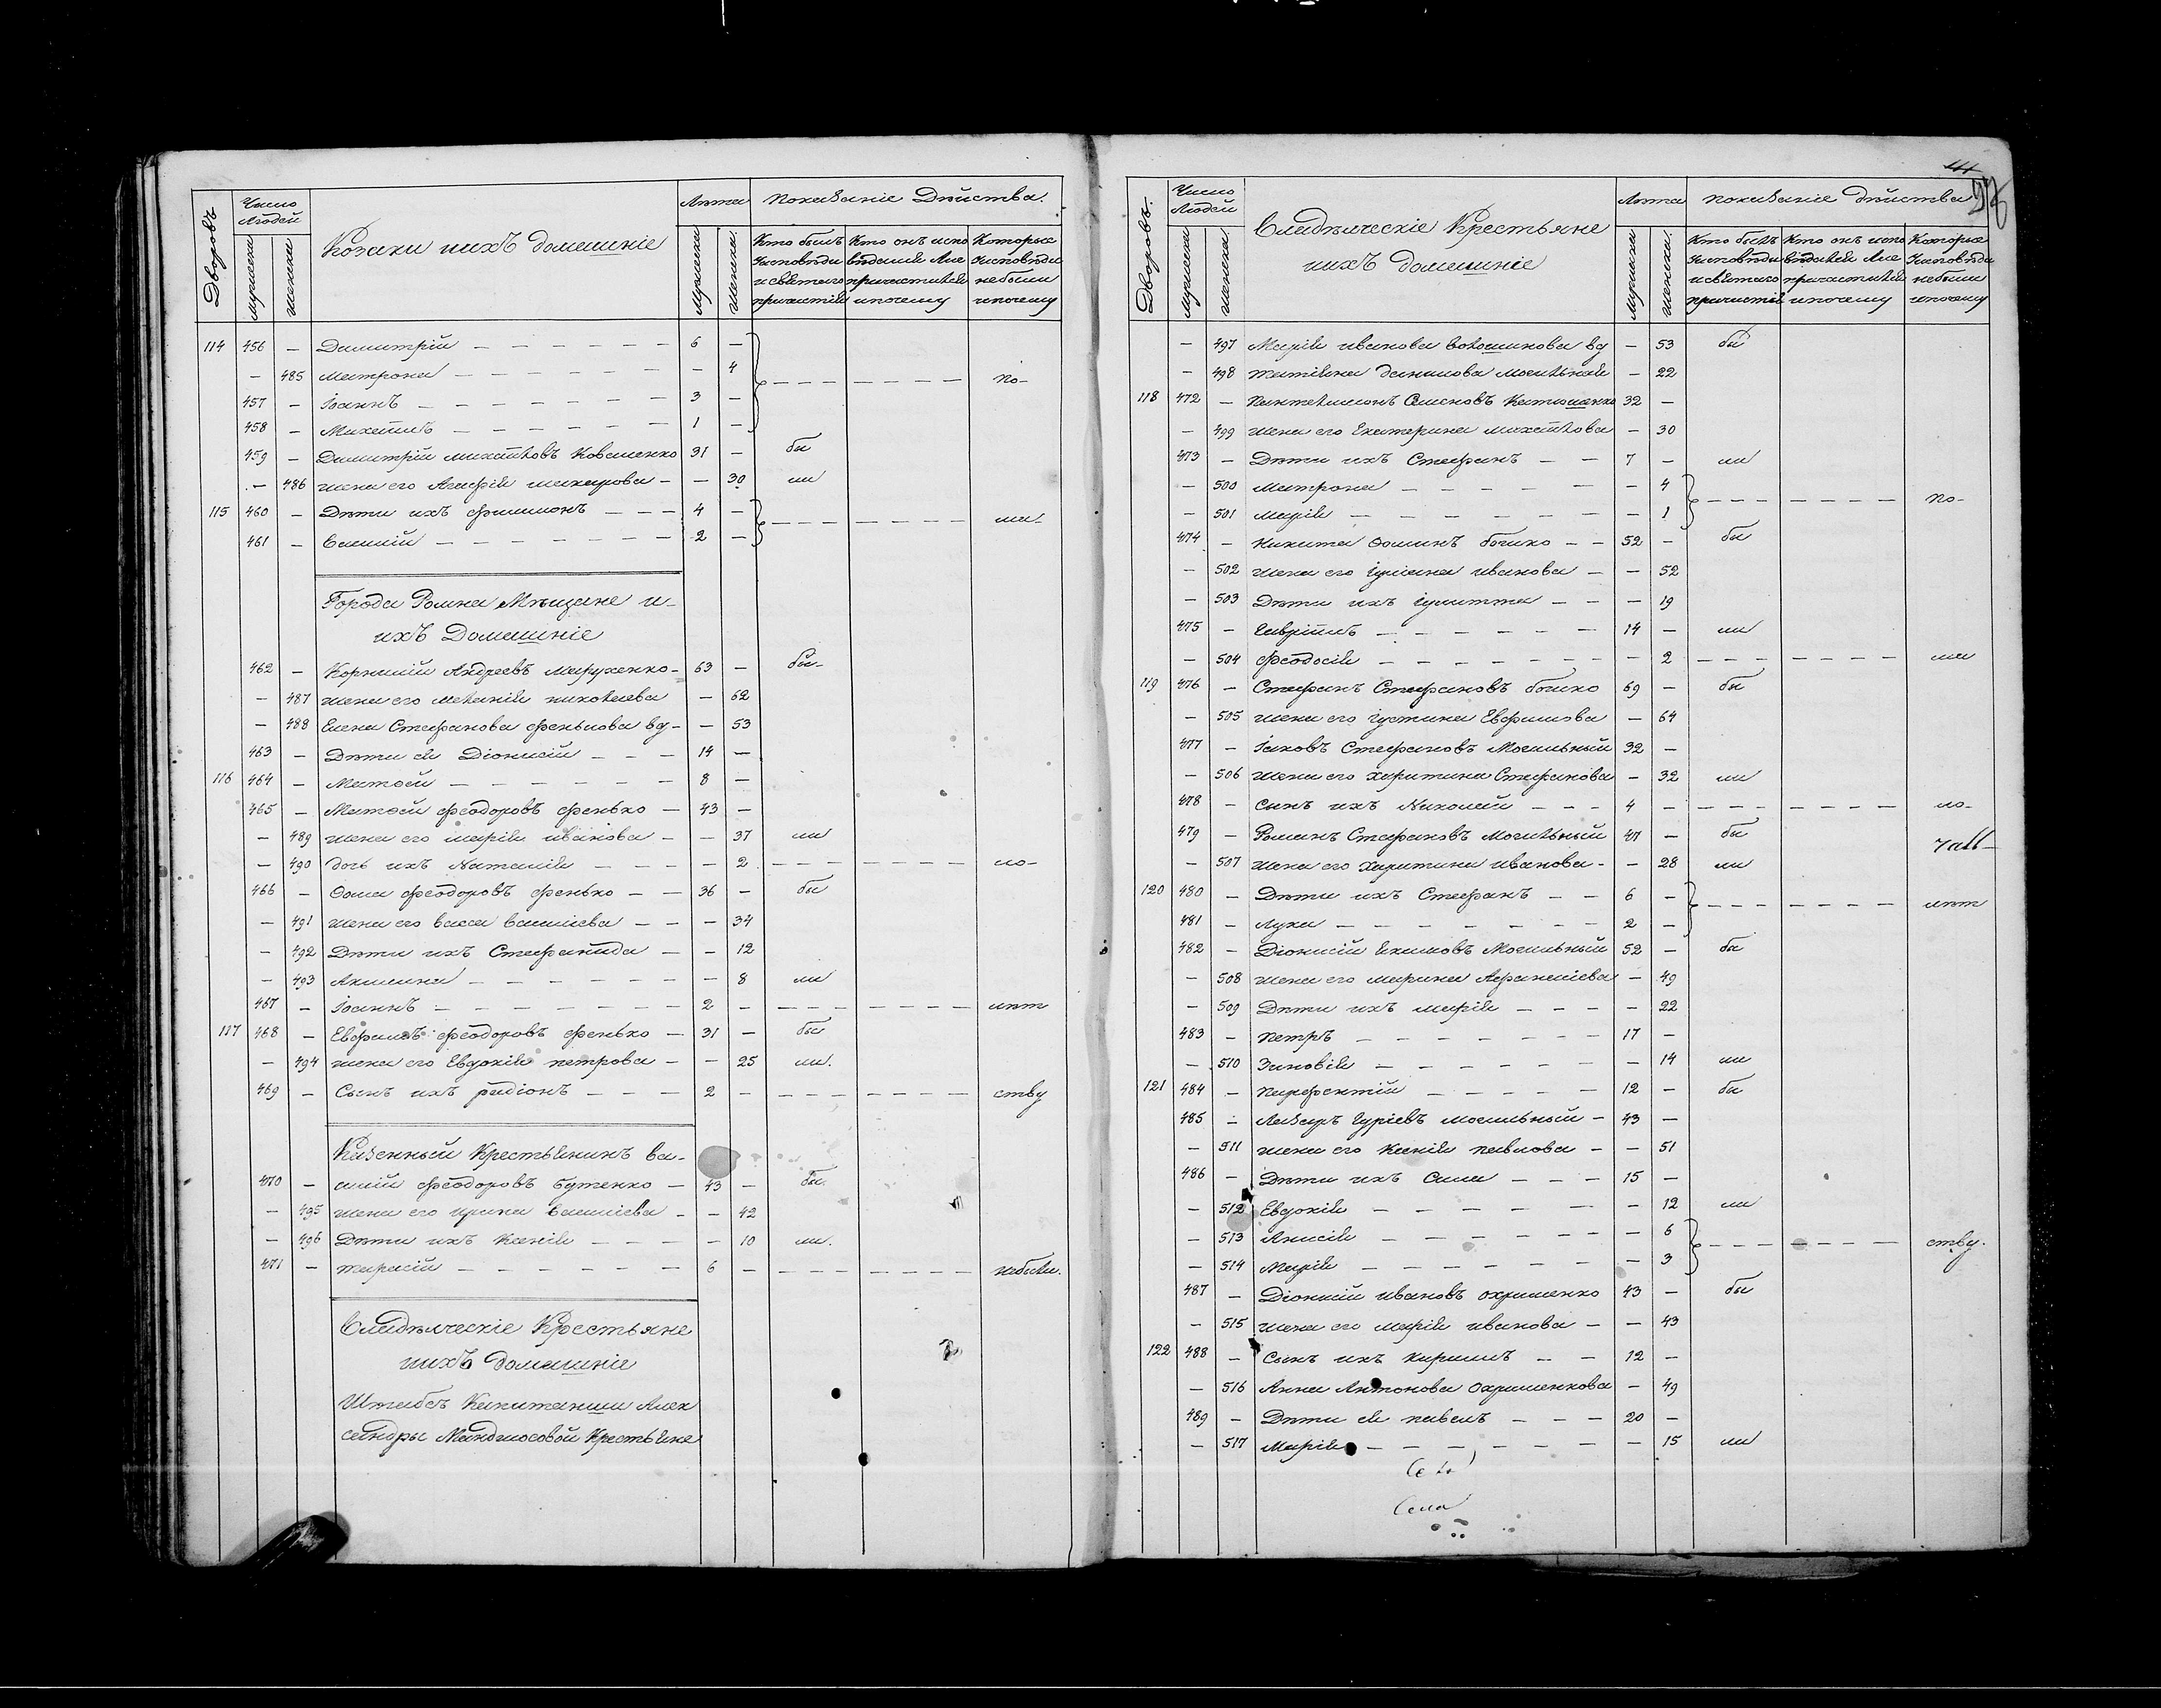 Дворовъ
Число Людей
мужеска
женска
Козаки ихъ домашніе
Лѣта
мужеска
женска
Показаніе Дѣйства.
Кто былъ Уисповѣди исвятаго причастія
Кто онъ испо вѣдался Ане причастился ипочему
Которые Уисповѣди небыли ипочему
114 456 — Димитрій — 6 —
— 485 Матрона — — 4 по-
457 — Іоаннъ — 3 —
458 — Михаилъ — 1 —
459 — Димитрій Михайловъ Коваленко 31 — бы
— 486 жена его Агафія Макарова — — 30 ли
115 460 — Дѣти ихъ Филимонъ — 4 — ма-
461 — Василій — 2 —
Города Ромна Мѣщане и
ихъ Домашніе
462 — Корнилій Андреевъ Марухенко — 63 — бы-
— 487 жена его Меланія Николаева — 62
— 488 Елена Стефанова Фенькова вд — — 53
463 — Дѣти ея Діонисій — 14 —
116 464 — Матѳей — 8 —
465 — Матѳей Феодоровъ Фенько — 43 —
— 489 жена его Марія Иванова — — 37 ли
— 490 дочь ихъ Наталія — — 2 ло-
466 — Ѳома Феодоровъ Фенько — 36 — бы
— 491 жена его Васса Василіева — — 34
— 492 Дѣти ихъ Стефанида — — 12
— 493 Акилина — — 8 ли
467 — Іоаннъ — 2 — лѣт
117 468 — Евфимъ Феодоровъ Фенько — 31 — бы
— 494 жена его Евдокія Петрова — — 25 ли.
469 — Сынъ ихъ Родіонъ — 2 — ству
Казенный Крестьянинъ Ва-
470 — силій Феодоровъ Бутенко — 43 — бы.
— 495 жена его Ирина Василіева — — 42
— 496 Дѣти ихъ Ксенія — — 10 ли.
471 — Тарасій — 6 — небыли.
Владѣлческіе Крестьяне
ихъ домашніе
Штабсъ Капитанши Алек
сандры Крестьяне
Дворовъ.
Число Людей
мужеска
женска.
Владѣлческіе Крестьяне
ихъ домашніе
Лѣта
мужеска
женска.
Показаніе дѣйства
Кто былъ Уисповѣди исвятаго причастія
Кто онъ испо вѣдался Ане причастился ипочему
Которые Уисповѣди небыли ипочему
— 497 Марія Иванова Волошинова вд — 53 бы
— 498 Татіана Данилова Могильная — 22
118 472 — Пантелимонъ Семеновъ 32 —
— 499 жена его Екатерина Михайлова — 30
473 — Дѣти ихъ Стефанъ — 7 — ли
— 500 Матрона — — 4 по-
— 501 Марія — — 1
474 — Никита Ѳоминъ Бочко — 52 — бы
— 502 жена его Іуліана Иванова — — 52
— 503 Дѣти ихъ Іулитта — — 19
475 — Гавріилъ — 14 — ли
— 504 Феодосія — — 2 ма
119 476 — Стефанъ Стефановъ Бочко 69 — бы
— 505 жена его Іустина Евфимова — 64
477 — Іаковъ Стефановъ Могильный 32 —
— 506 жена его Харитина Стефанова — 32 ли
478 — Сынъ ихъ Николай — 4 — ло-
479 — Романъ Стефановъ Могильный 41 — бы
— 507 жена его Харитина Иванова — — 28 ли
120 480 — Дѣти ихъ Стефанъ — 6 — лѣт
481 — Лука — 2 —
482 — Діонисій Могильный 52 — бы
— 508 жена его Марина Афанасіева — 49
— 509 Дѣти ихъ Марія — — 22
483 — Петръ — 17 —
— 510 Зиновія — — 14 ли
121 484 — Парфентій — 12 — бы
485 — Лазарь Гуріевъ Могильный — 43 —
— 511 жена его Ксенія Павлова — — 51
486 — Дѣти ихъ Сила — 15 —
— 512 Евдокія — — 12 ли
— 513 Анисія — — 6 ству.
— 514 Марія — — 3
487 — Діонисій Ивановъ Охрименко 43 — бы
— 515 жена его Марія Иванова — — 43
122 488 — Сынъ ихъ Кирилъ — 12 —
— 516 Анна Антонова Охрименкова — 49
489 — Дѣти ея Павелъ — 20 —
— 517 Марія — — 15 ли
Села